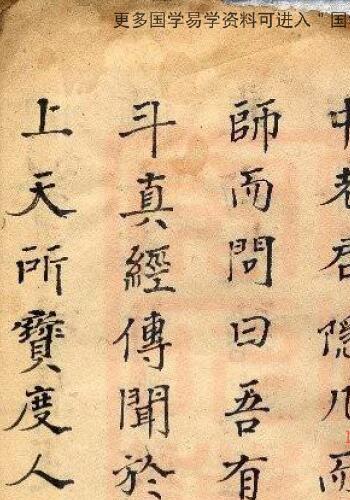 更多国学易学资料可进入"国
中老君隱几而
師而問曰吾有
斗真經傳聞於
上天所寶度人